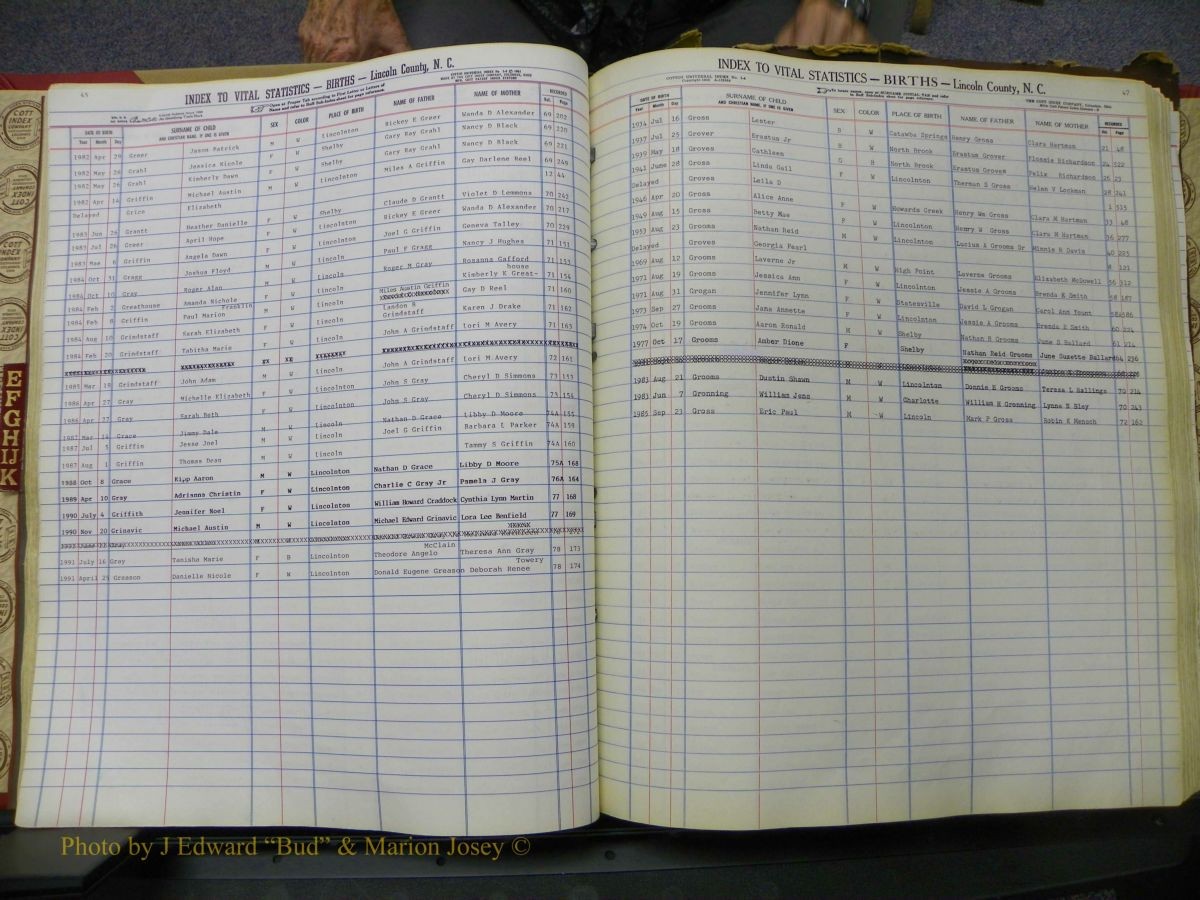 45
INDEX TO VITAL STATISTICS — BIRTHS — Lincoln County, N. C.
DATE OF BIRTH SURNAME OF CHILD SEX COLOR PLACE OF BIRTH NAME OF FATHER NAME OF MOTHER RECORDED
Year Month Day AND CHRISTIAN NAME, IF ONE IS GIVEN Vol. Page
1982 Apr 29 Greer Jason Patrick M W Lincolnton Rickey E Greer Wanda D Alexander 69 202
1982 May 26 Grahl Jessica Nicole F W Shelby Gary Ray Grahl Nancy D Black 69 220
1982 May 26 Grahl Kimberly Dawn F W Shelby Gary Ray Grahl Nancy D Black 69 221
1982 Apr 14 Griffin Michael Austin M W Lincolnton Miles A Griffin Gay Darlene Reel 69 249
Delayed Grice Elizabeth 12 44
1983 Jun 26 Grantt Heather Danielle F W Shelby Claude D Grantt Violet D Lemmons 70 242
1983 Jul 26 Greer April Hope F W Lincolnton Rickey E Greer Wanda D Alexander 70 217
1983 Mae 6 Griffin Angela Dawn F W Lincolnton Joel G Griffin Geneva Talley 70 229
1984 Oct 31 Gragg Joshua Floyd M W Lincoln Paul F Gragg Nancy J Hughes 71 151
1984 Oct 10 Gray Roger Alan Lincoln Roger M Gray Rosanna Gafford 71 153
1984 Feb 2 Greathouse Amanda Nichole F W Lincoln Kimberly K Great-house 71 154
1984 Feb 8 Griffin Paul Marion Franklin Lincoln Miles Austin Griffin Gay D Reel 71 160
1984 Aug 10 Grindstaff Sarah Elizabeth F W Lincoln Landon R Grindstaff Karen J Drake 71 162
1984 Feb 20 Grindstaff Tabitha Marie F W Lincoln John A Grindstaff Lori M Avery 71 163
1985 Mar 18 Grindstaff John Adam M W Lincoln John A Grindstaff Lori M Avery 72 161
1986 Apr 27 Gray Michelle Elizabeth Lincolnton John S Gray Cheryl D Simmons 73 153
1986 Apr 27 Gray Sarah Beth Lincolnton John S Gray Cheryl D Simmons 73 154
1987 Mar 14 Grace Jimmy Dale M W Lincoln Nathan D Grace Libby D Moore 74A 155
1987 Jul 5 Griffin Jesse Joel M W Lincoln Joel G Griffin Barbara L Parker 74A 159
1987 Aug 1 Griffin Thomas Dean M W Lincoln Tammy S Griffin 74A 160
1988 Oct 8 Grace Kipp Aaron M W Lincolnton Nathan D Grace Libby D Moore 75A 168
1989 Apr 10 Gray Adrianna Christin F W Lincolnton Charlie C Gray Jr Pamela J Gray 76A 164
1990 July 4 Griffith Jennifer Noel F W Lincolnton William Howard Craddock Cynthia Lynn Martin 77 168
1990 Nov 20 Grinavic Michael Austin M W Lincolnton Michael Edward Grinavic Lora Lee Benfield 77 169
1991 July 16 Gray Tanisha Marie F B Lincolnton Theodore Angelo McClain Theresa Ann Gray 78 173
1991 April 25 Greason Danielle Nicole F W Lincolnton Donald Eugene Greason Deborah Renee Towery 78 174
INDEX TO VITAL STATISTICS — BIRTHS — Lincoln County, N. C.
47
DATE OF BIRTH SURNAME OF CHILD SEX COLOR PLACE OF BIRTH NAME OF FATHER NAME OF MOTHER RECORDED
Year Month Day AND CHRISTIAN NAME, IF ONE IS GIVEN Vol. Page
1934 Jul 16 Gross Lester Catawba Springs Henry Gross Clara Hartman 21 48
1937 Jul 25 Grover Erastus Jr North Brook Erastus Grover Flossie Richardson 24 522
1939 May 18 Groves Cathleen North Brook Erastus Groves Felix Richardson
1941 June 28 Gross Linda Gail F W Lincolnton Therman S Gross Helen V Lockman 28 241
Delayed Groves Leila D 1 535
1946 Apr 20 Gross Alice Anne F W Howards Creek Henry Wm Gross Clara M Hartman 33 48
1949 Aug 15 Gross Betty Mae F W Lincolnton Henry W Gross Clara M Hartman 36 277
1953 Aug 23 Grooms Nathan Reid M W Lincolnton Lucius A Grooms Sr Minnie R Davis 40 225
Delayed Groves Georgia Pearl 8 121
1969 Aug 12 Grooms Laverne Jr M W High Point Laverne Grooms Elizabeth McDowell 56 312
1971 Aug 19 Grooms Jessica Ann F W Lincolnton Jessie A Grooms Brenda K Smith 58 187
1971 Aug 31 Grogan Jennifer Lynn F W Statesville David L Grogan Carol Ann Yount
1973 Sep 27 Grooms Jana Annette F W Lincolnton Jessie A Grooms Brenda K Smith 60 224
1974 Oct 19 Grooms Aaron Ronald M W Shelby Nathan R Grooms June S Ballard 61 214
1977 Oct 17 Grooms Amber Dione F Shelby Nathan Reid Grooms June Suzette Ballard 64 236
1983 Aug 21 Grooms Dustin Shawn M W Lincolnton Donnie H Grooms Teresa L Sallings 70 214
1983 Jun 7 Gronning William Jens M W Charlotte William H Gronning Lynne N Sley 70 243
1985 Sep 23 Gross Eric Paul M W Lincoln Mark P Gross Robin K Mensch 72 162
COTT INDEX COMPANY
E
F
G
H
IJ
K
Photo by J Edward “Bud” & Marion Josey ©